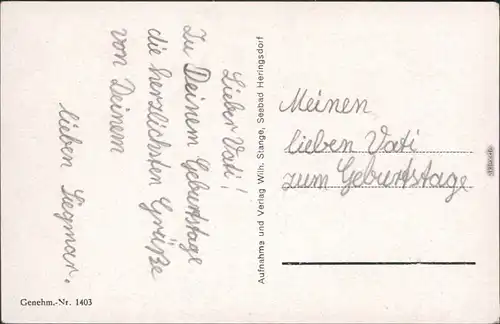 Lieber Vati!
Zu Deinem Geburtstage
die herzlichsten Grüße
von Deinem
lieben Siegmar.
Aufnahme und Verlag Wilh. Stange, Seebad Heringsdorf
Meinen
lieben Vati
zum Geburtstage
Genehm.-Nr. 1403